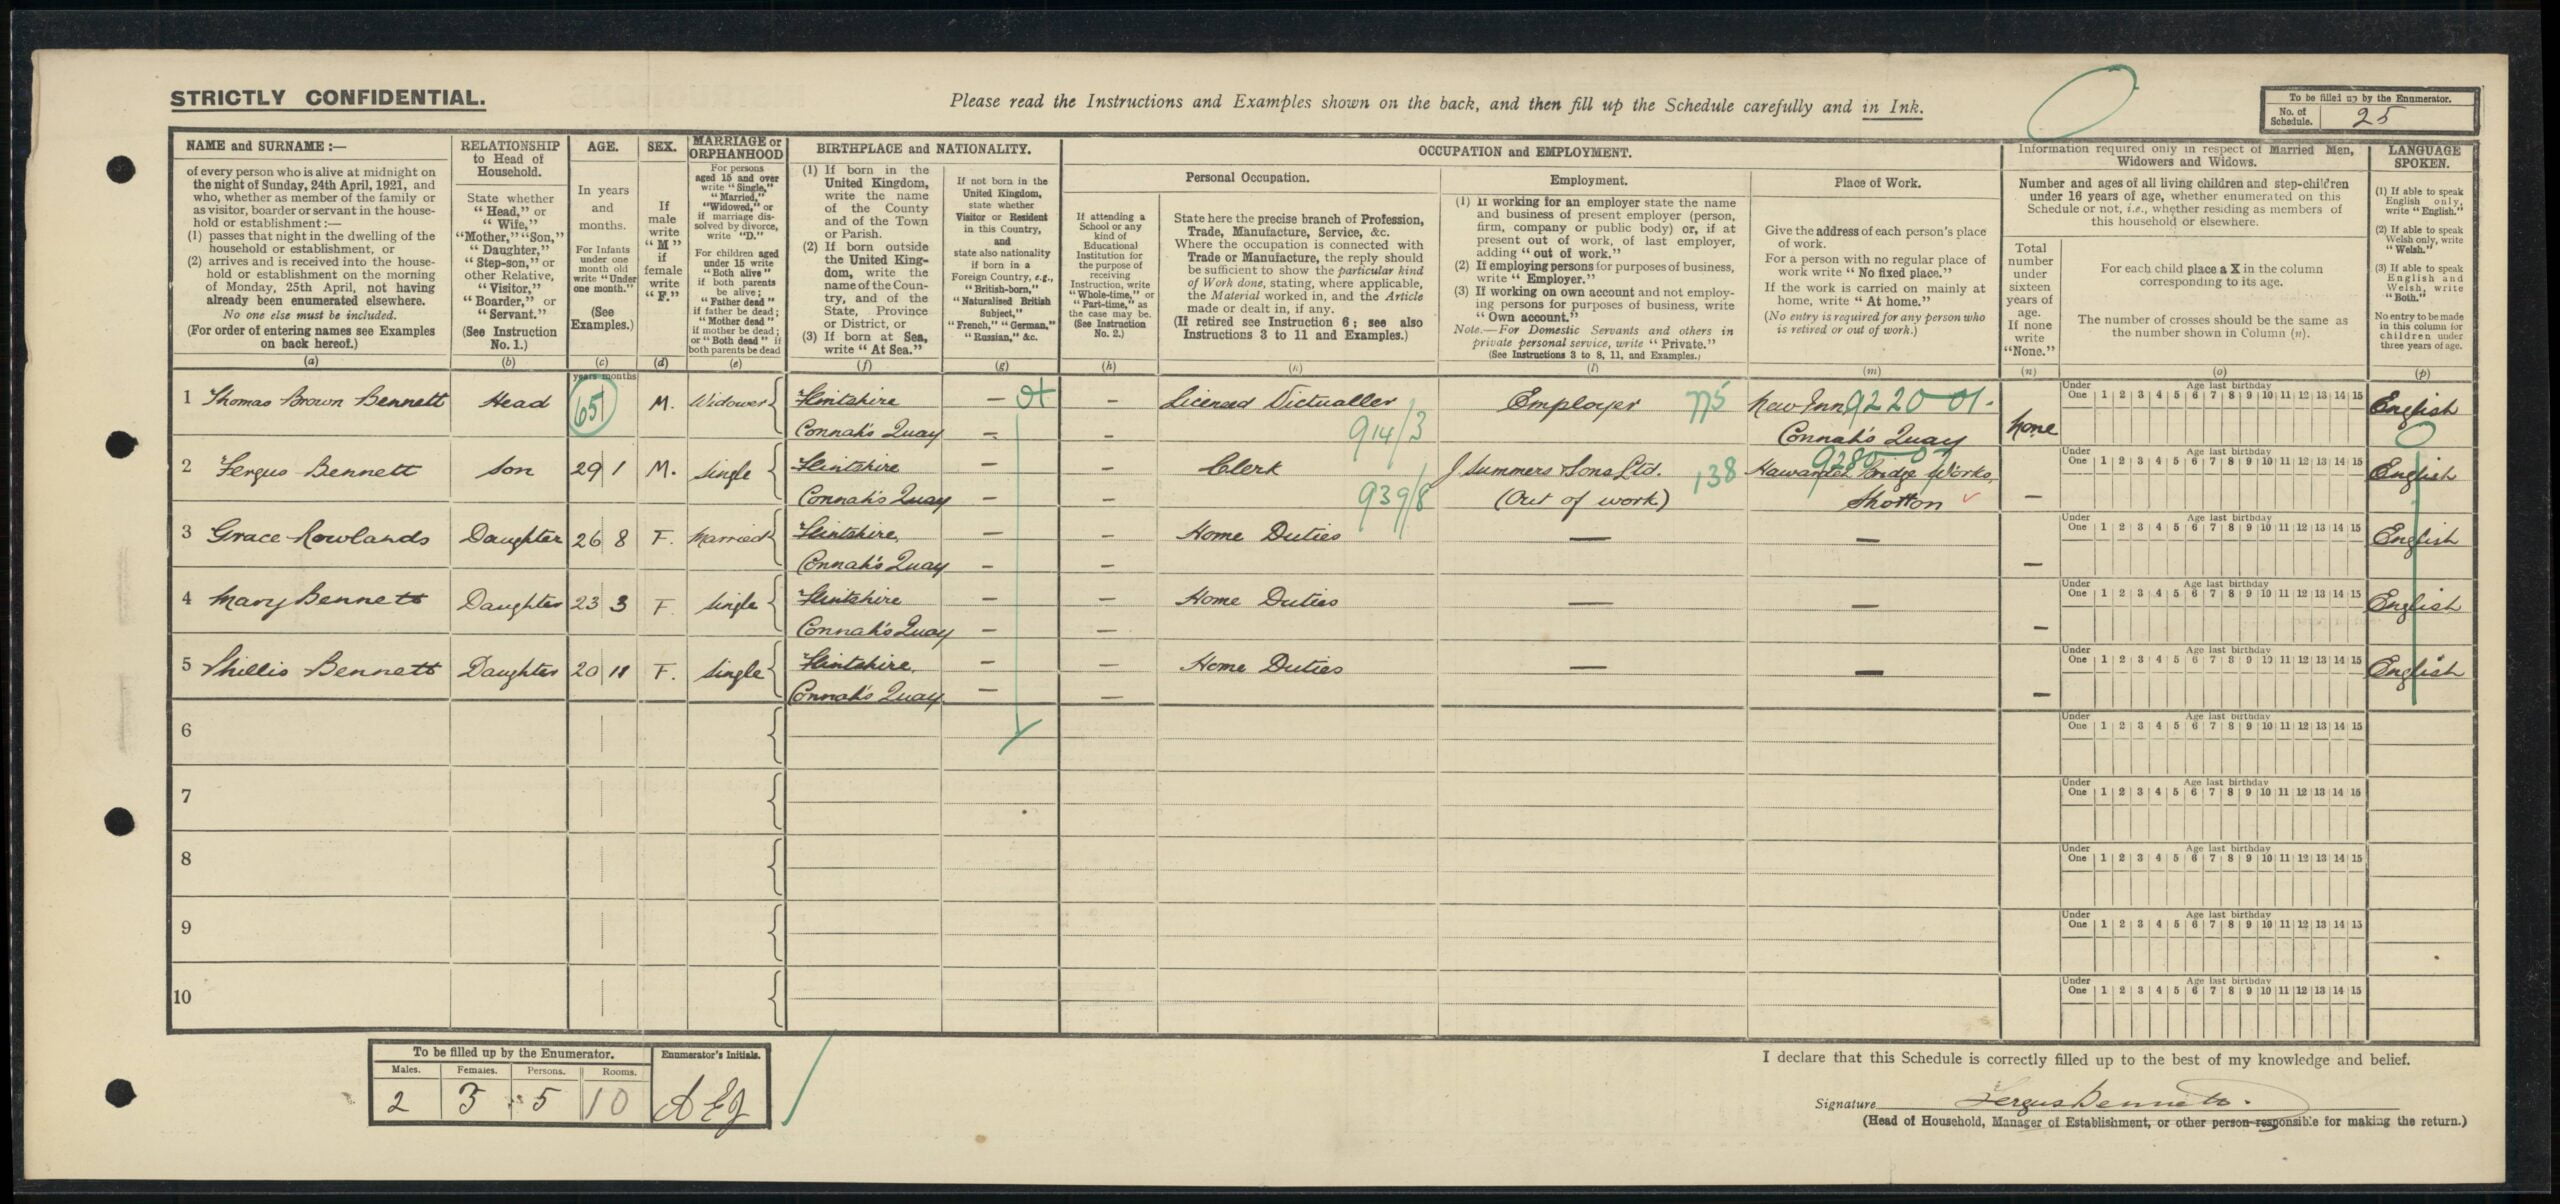 STRICTLY CONFIDENTIAL.
Please read the Instructions and Examples shown on the back, and then fill up the Schedule carefully and in Ink.
To be filled up by the Enumerator.
No. of Schedule. 25
NAME and SURNAME :—
of every person who is alive at midnight on
the night of Sunday, 24th April, 1921, and
who, whether as member of the family or
as visitor, boarder or servant in the house-
hold or establishment :—
(1) passes that night in the dwelling of the
household or establishment, or
(2) arrives and is received into the house-
hold or establishment on the morning
of Monday, 25th April, not having
already been enumerated elsewhere.
No one else must be included.
(For order of entering names see Examples
on back hereof.)
(a)
RELATIONSHIP
to Head of
Household.
State whether
“Head,” or
“Wife,”
“Mother,” “Son,”
“Daughter,”
“Step-son,” or
other Relative,
“Visitor,”
“Boarder,” or
“Servant.”
(See Instruction
No. 1.)
(b)
AGE.
In years
and
months.
For Infants
under one
month old
write “Under
one month.”
(See
Examples.)
(c)
SEX.
If
male
write
“M”
if
female
write
“F.”
(d)
MARRIAGE or
ORPHANHOOD
For persons
aged 15 and over
write “Single,”
“Married,”
“Widowed,” or
if marriage dis-
solved by divorce,
write “D.”
For children aged
under 15 write
“Both alive”
if both parents
be alive;
“Father dead”
if father be dead;
“Mother dead”
if mother be dead;
or “Both dead” if
both parents be dead
(e)
BIRTHPLACE and NATIONALITY.
(1) If born in the
United Kingdom,
write the name
of the County
and of the Town
or Parish.
(2) If born outside
the United King-
dom, write the
name of the Coun-
try, and of the
State, Province
or District, or
(3) If born at Sea,
write “At Sea.”
(f)
If not born in the
United Kingdom,
state whether
Visitor or Resident
in this Country,
and
state also nationality
if born in a
Foreign Country, e.g.,
“British-born,”
“Naturalised British
Subject,”
“French,” “German,”
“Russian,” &c.
(g)
OCCUPATION and EMPLOYMENT.
If attending a
School or any
kind of
Educational
Institution for
the purpose of
receiving
Instruction, write
“Whole-time,” or
“Part-time,” as
the case may be.
(See Instruction
No. 2.)
(h)
Personal Occupation.
State here the precise branch of Profession,
Trade, Manufacture, Service, &c.
Where the occupation is connected with
Trade or Manufacture, the reply should
be sufficient to show the particular kind
of Work done, stating, where applicable,
the Material worked in, and the Article
made or dealt in, if any.
(If retired see Instruction 6; see also
Instructions 3 to 11 and Examples.)
(k)
Employment.
(1) If working for an employer state the name
and business of present employer (person,
firm, company or public body) or, if at
present out of work, of last employer,
adding “out of work.”
(2) If employing persons for purposes of business,
write “Employer.”
(3) If working on own account and not employ-
ing persons for purposes of business, write
“Own account.”
Note.—For Domestic Servants and others in
private personal service, write “Private.”
(See Instructions 3 to 8, 11, and Examples.)
(l)
Place of Work.
Give the address of each person's place
of work.
For a person with no regular place of
work write “No fixed place.”
If the work is carried on mainly at
home, write “At home.”
(No entry is required for any person who
is retired or out of work.)
(m)
Information required only in respect of Married Men,
Widowers and Widows.
Number and ages of all living children and step-children
under 16 years of age, whether enumerated on this
Schedule or not, i.e., whether residing as members of
this household or elsewhere.
Total
number
under
sixteen
years of
age.
If none
write
“None.”
(n)
For each child place a X in the column
corresponding to its age.
The number of crosses should be the same as
the number shown in Column (n).
(o)
LANGUAGE
SPOKEN.
(1) If able to speak
English only,
write “English.”
(2) If able to speak
Welsh only, write
“Welsh.”
(3) If able to speak
English and
Welsh, write
“Both.”
No entry to be made
in this column for
children under
three years of age.
(p)
years months
1 Thomas Brown Bennett Head 65 M. Widower Flintshire — — Licensed Victualler Employer 775 New Inn 9220 01 English
Connah's Quay — — 914/3 Connah's Quay None
Under One 1 2 3 4 5 6 7 8 9 10 11 12 13 14 15 Age last birthday
2 Fergus Bennett Son 29 1 M. Single Flintshire — — Clerk J Summers & Sons Ltd. 138 Hawarden Bridge Works, English
Connah's Quay — — 939/8 (Out of work) Shotton —
Under One 1 2 3 4 5 6 7 8 9 10 11 12 13 14 15 Age last birthday
3 Grace Rowlands Daughter 26 8 F. Married Flintshire, — — Home Duties — — English
Connah's Quay — — —
Under One 1 2 3 4 5 6 7 8 9 10 11 12 13 14 15 Age last birthday
4 Mary Bennett Daughter 23 3 F. Single Flintshire — — Home Duties — — English
Connah's Quay — — —
Under One 1 2 3 4 5 6 7 8 9 10 11 12 13 14 15 Age last birthday
5 Phillis Bennett Daughter 20 11 F. Single Flintshire, — — Home Duties — — English
Connah's Quay. — — —
Under One 1 2 3 4 5 6 7 8 9 10 11 12 13 14 15 Age last birthday
6 Under One 1 2 3 4 5 6 7 8 9 10 11 12 13 14 15 Age last birthday
7 Under One 1 2 3 4 5 6 7 8 9 10 11 12 13 14 15 Age last birthday
8 Under One 1 2 3 4 5 6 7 8 9 10 11 12 13 14 15 Age last birthday
9 Under One 1 2 3 4 5 6 7 8 9 10 11 12 13 14 15 Age last birthday
10 Under One 1 2 3 4 5 6 7 8 9 10 11 12 13 14 15 Age last birthday
To be filled up by the Enumerator. Enumerator's Initials.
Males. Females. Persons. Rooms.
2 3 5 10 AEJ
I declare that this Schedule is correctly filled up to the best of my knowledge and belief.
Signature Fergus Bennett.
(Head of Household, Manager of Establishment, or other person responsible for making the return.)